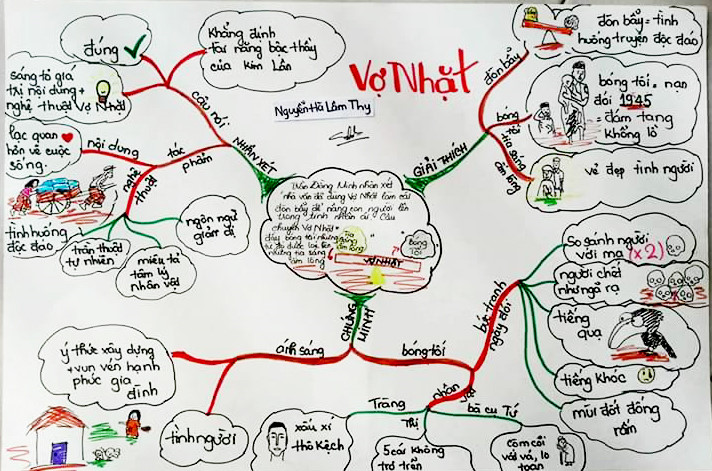 Vợ Nhặt
Nguyễn Hà Lâm Thy
đúng
Khẳng định
tài năng bậc thầy
của Kim Lân
sáng tỏ giá
trị nội dung +
nghệ thuật Vợ Nhặt
câu nói
NHẬN XÉT
lạc quan
hơn về cuộc
sống.
nội dung
tác
phẩm
nghệ
thuật
tình huống
độc đáo
trần thuật
tự nhiên
miêu tả
tâm lý
nhân vật
ngôn ngữ
giản dị
GIẢI THÍCH
đòn bẩy
đòn bẩy = tình
huống truyện độc đáo
bóng
tối
bóng tối = nạn
đói 1945
= đám tang
khổng lồ
tia sáng
ấm lòng
vẻ đẹp tình người
Trần Đồng Minh nhận xét
nhà văn đã dùng Vợ Nhặt làm cái
đòn bẩy để nâng con người lên
trong tình nhân ái. Câu
chuyện Vợ Nhặt
đầy bóng tối nhưng
từ đó được lóe lên
những tia sáng
ấm lòng
Tia
sáng
ấm lòng
Bóng
Tối
VỢ NHẶT
CHỨNG
MINH
ánh sáng
ý thức xây dựng
+ vun vén hạnh
phúc gia
đình
tình người
bóng tối
bức tranh
ngày đói
So sánh người
với ma (x2)
người chết
như ngả rạ
tiếng
quạ
tiếng khóc
mùi đốt đống
rấm
nhân
vật
Tràng
xấu xí
thô kệch
Thị
5 cái không
trơ trẽn
bà cụ Tứ
Com cõi
vất vả, lo
toan